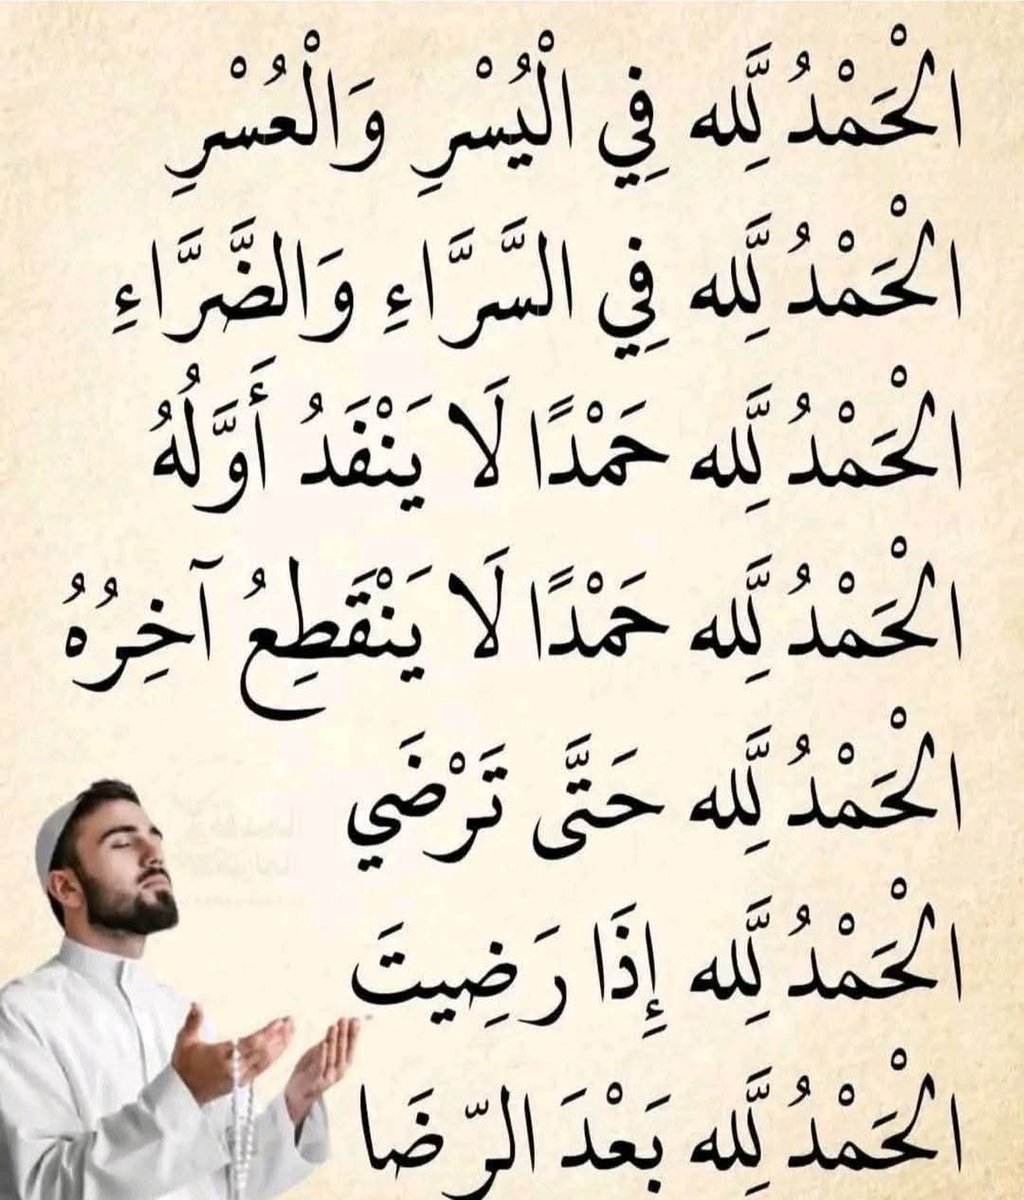 الْحَمْدُ لِلَّه فِي الْيُسْرِ وَالْعُسْرِ
الْحَمْدُ لِلَّه فِي السَّرَّاءِ وَالضَّرَّاءِ
الْحَمْدُ لِلَّه حَمْدًا لَا يَنْفَدُ أَوَّلُهُ
الْحَمْدُ لِلَّه حَمْدًا لَا يَنْقَطِعُ آخِرُهُ
الْحَمْدُ لِلَّه حَتَّى تَرْضَي
الْحَمْدُ لِلَّه إِذَا رَضِيتَ
الْحَمْدُ لِلَّه بَعْدَ الرّضَا